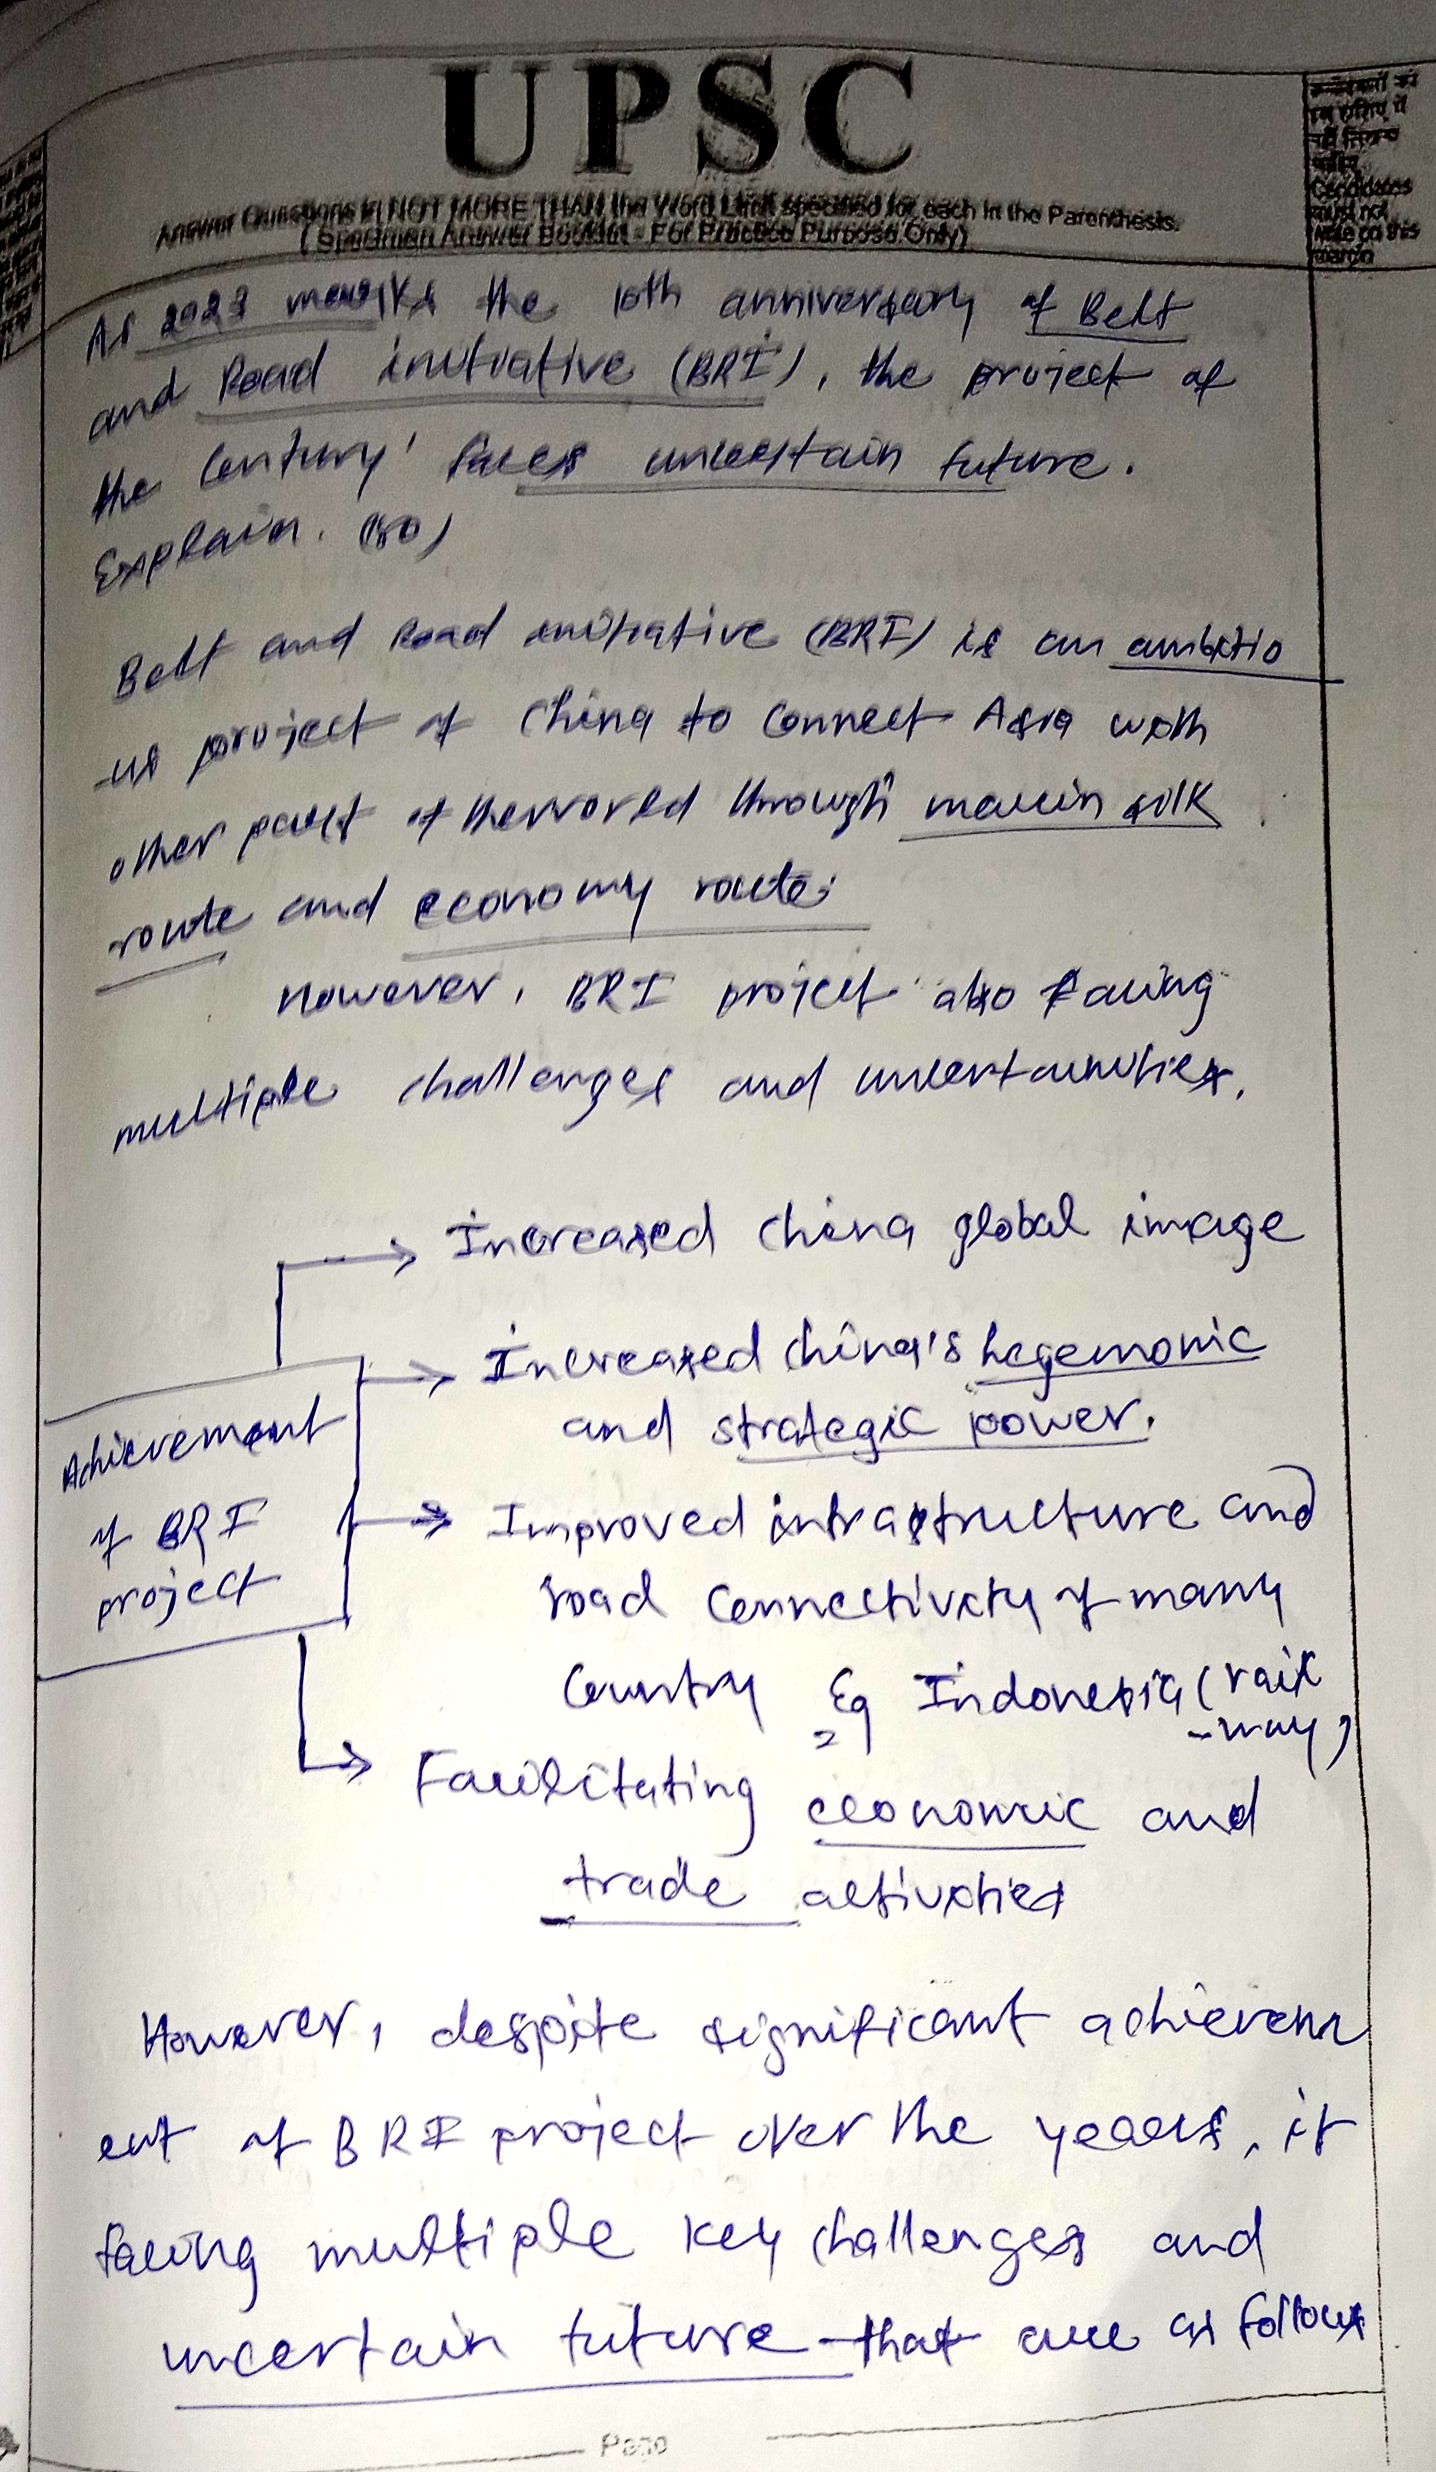 UPSC
Answer Questions in NOT MORE THAN the Word Limit specified for each in the Parenthesis.
(Specimen Answer Booklet - For Practice Purpose Only)
उम्मीदवारों को
इस हाशिए में
नहीं लिखना
चाहिए
Candidates
must not
write on this
margin
As 2023 marks the 10th anniversary of Belt
and Road initiative (BRI), the project of
the Century' faces uncertain future.
Explain. (10)
Belt and Road initiative (BRI) is an ambitio
-us project of China to connect Asia with
other part of the world through silk
route and economy route.
However, BRI project also facing
multiple challenges and uncertainities.
Achievement
of BRI
project
→ Increased china global image
→ Increased china's hegemonic
and strategic power.
→ Improved infrastructure and
road connectivity of many
Country Eg Indonesia (rail
-way)
→ Facilitating economic and
trade activities
However, despite significant achievem
ent of BRI project over the years, it
facing multiple key challenges and
uncertain future that are as follows
Page